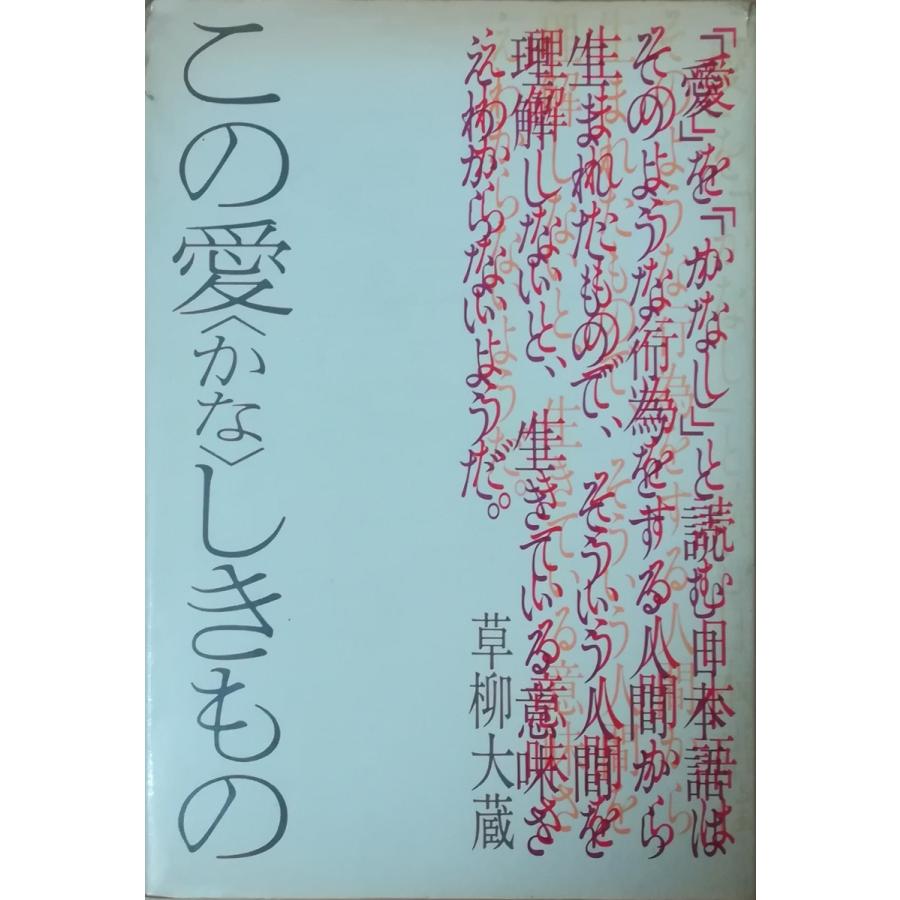 「愛」を「かなし」と読む日本語は
そのような行為をする人間から
生まれたもので、そういう人間を
理解しないと、生きている意味さ
えわからないようだ。
草柳大蔵
この愛〈かな〉しきもの